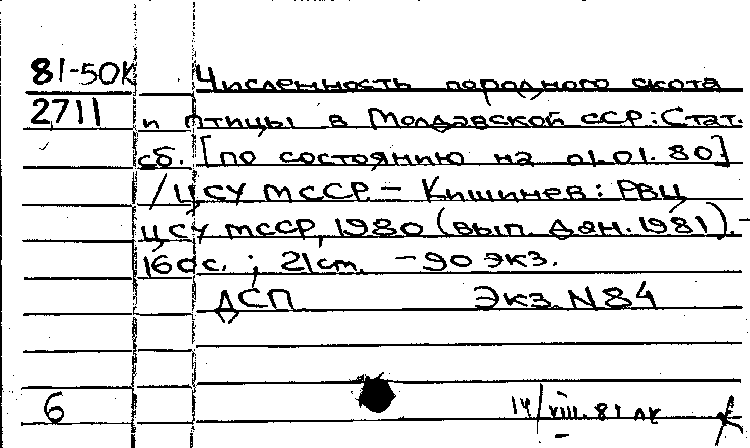 81-50К Численность породного скота
2711 и птицы в Молдавской ССР: Стат.
сб. [по состоянию на 01.01.80]
/ЦСУ МССР. – Кишинев: РВЦ
ЦСУ МССР, 1980 (вып. дан. 1981). –
160 с. ; 21 ст. – 90 экз.
ДСП Экз. N 84
6 14/VIII.81